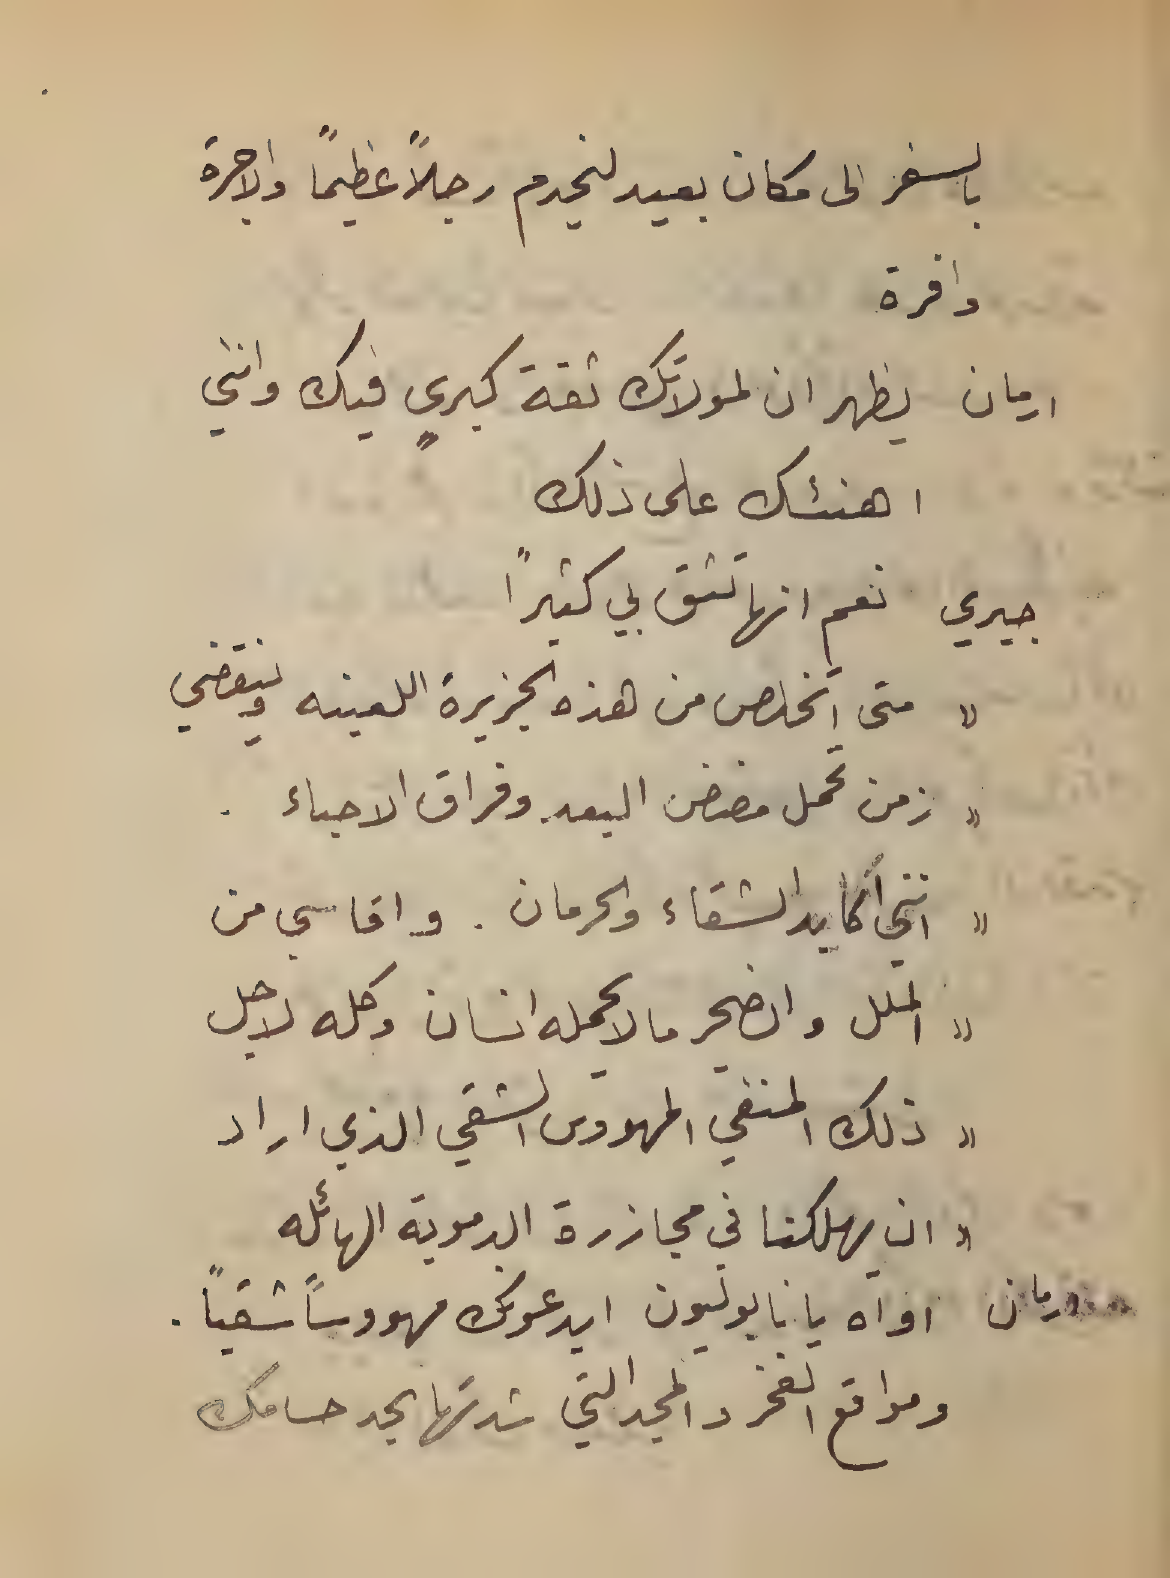 بالسفر الى مكان بعيد لنخدم رجلاً عظيماً والاجرة
وافرة
ارمان يظهر ان لمولاتك ثقة كبرى فيك وانني
اهنئك على ذلك
جيري نعم انها تثق بي كثيراً
« متى اتخلص من هذه الجزيرة اللعينه وينقضي
« زمن تحمل مضض البعد وفراق الاحباء .
« انني أكابد الشقاء والحرمان . واقاسي من
« الملل والضجر ما لا يحمله انسان وكله لاجل
« ذلك المنفي المهووس الشقي الذي اراد
« ان يهلكنا في مجازرة الدموية الهائله
ارمان اواه يا نابوليون ايدعونك مهووساً شقياً .
ومواقع الفخر والمجد التي شدتها بحد حسامك